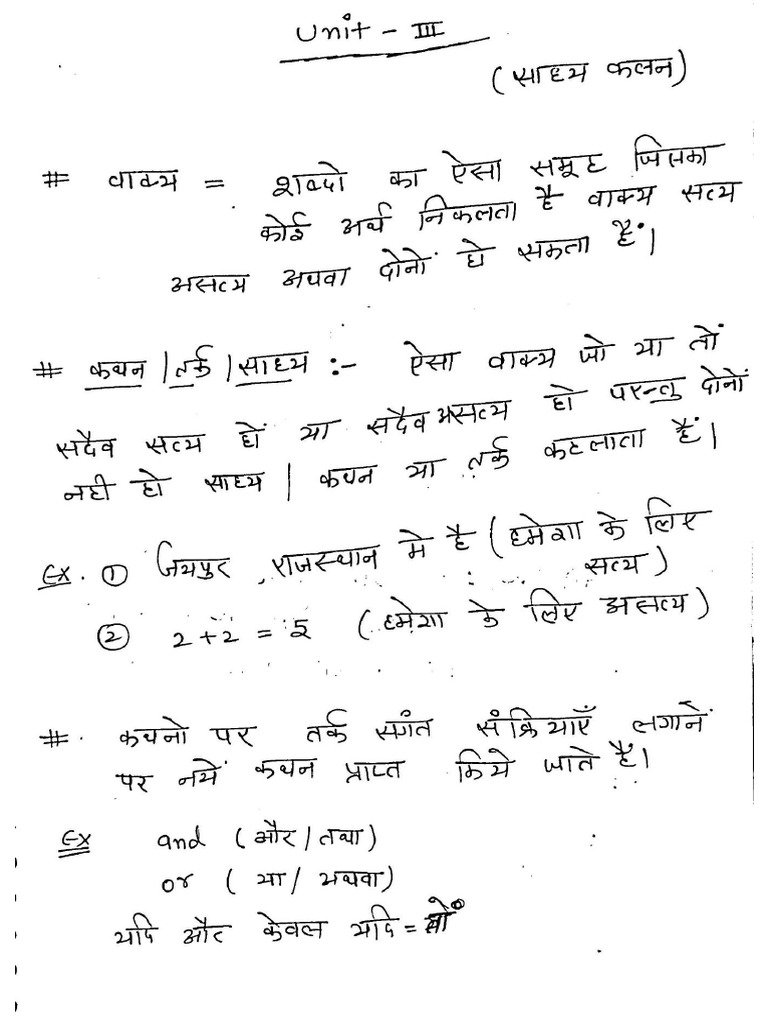 Unit - III
(साध्य कलन)
# वाक्य = शब्दो का ऐसा समूह जिसका
कोई अर्थ निकलता है वाक्य सत्य
असत्य अथवा दोनों हो सकता हैं।
# कथन / तर्क / साध्य :- ऐसा वाक्य जो या तों
सदैव सत्य हों या सदैव असत्य हो परन्तु दोनों
नही हो साध्य / कथन या तर्क कहलाता हैं।
Ex. ① जियपुर राजस्थान मे है (हमेशा के लिए
सत्य)
② 2+2 = 5 (हमेशा के लिए असत्य)
# कथनो पर तर्क संगत संक्रियाएँ लगाने
पर नयें कथन प्राप्त किये जाते हैं।
Ex and (और / तथा)
or (या / अथवा)
यदि और केवल यदि =